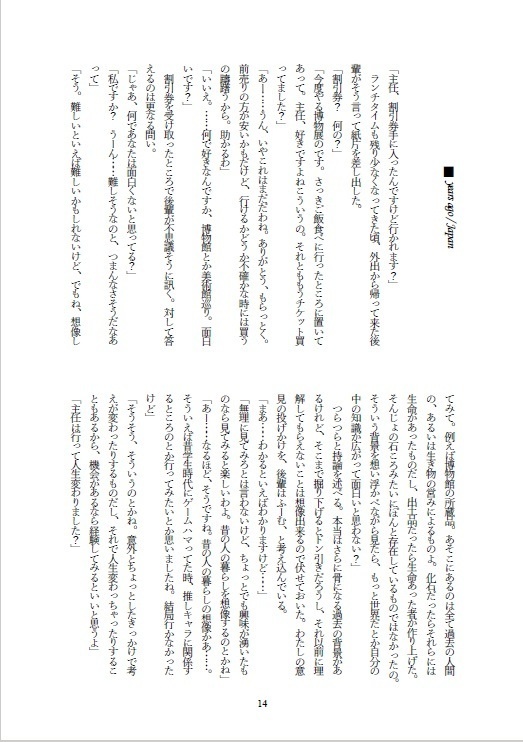 ■ years ago／Japan
「主任、割引券手に入ったんですけど行かれます？」
ランチタイムも残り少なくなってきた頃、外出から帰って来た後
輩がそう言って紙片を差し出した。
「割引券？　何の？」
「今度やる博物展のです。さっきご飯食べに行ったところに置いて
あって。主任、好きですよねこういうの。それとももうチケット買
ってました？」
「あー……うん、いやこれはまだだわね。ありがとう、もらっとく。
前売りの方が安いかもだけど、行けるかどうか不確かな時には買う
の躊躇うから。助かるわ」
「いいえ。……何で好きなんですか、博物館とか美術館巡り。面白
いです？」
割引券を受け取ったところで後輩が不思議そうに訊く。対して答
えるのは更なる問い。
「じゃあ、何であなたは面白くないと思ってる？」
「私ですか？　うーん……難しそうなのと、つまんなさそうだなあ
って」
「そう。難しいといえば難しいかもしれないけど、でもね、想像し
てみて。例えば博物館の所蔵品。あそこにあるのは全て過去の人間
の、あるいは生き物の営みによるものよ。化石だったらそれらには
生命があったものだし、出土品だったら生命あった者が作り上げた。
そんじょの石ころみたいにぽんと存在しているものではなかったの。
そういう背景を想い浮かべながら見たら、もっと世界だとか自分の
中の知識が広がって面白いと思わない？」
つらつらと持論を述べる。本当はさらに骨になる過去の背景があ
るけれど、そこまで掘り下げるとドン引きだろうし、それ以前に理
解してもらえないことは想像出来るので伏せておいた。わたしの意
見の投げかけを、後輩はふーむ、と考え込んでいる。
「まあ……わかるといえばわかりますけど……」
「無理に見てみろとは言わないけど、ちょっとでも興味が湧いたも
のなら見てみると楽しいわよ。昔の人の暮らしを想像するのとかね」
「あー……なるほど、そうですね。昔の人の暮らしの想像かあ……。
そういえば昔学生時代にゲームハマってた時、推しキャラに関係す
るところのとか行ってみたいとか思いましたね。結局行かなかった
けど」
「そうそう、そういうのとかね。意外とちょっとしたきっかけで考
えが変わったりするものだし、それで人生変わっちゃったりするこ
ともあるから、機会があるなら経験してみるといいと思うよ」
「主任は行って人生変わりました？」
14